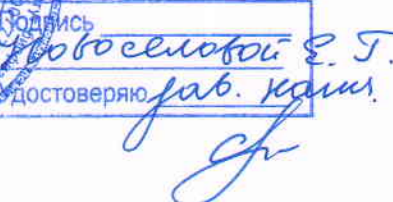 Подпись
Новоселовой Е. Г.
Удостоверяю зав. канц.